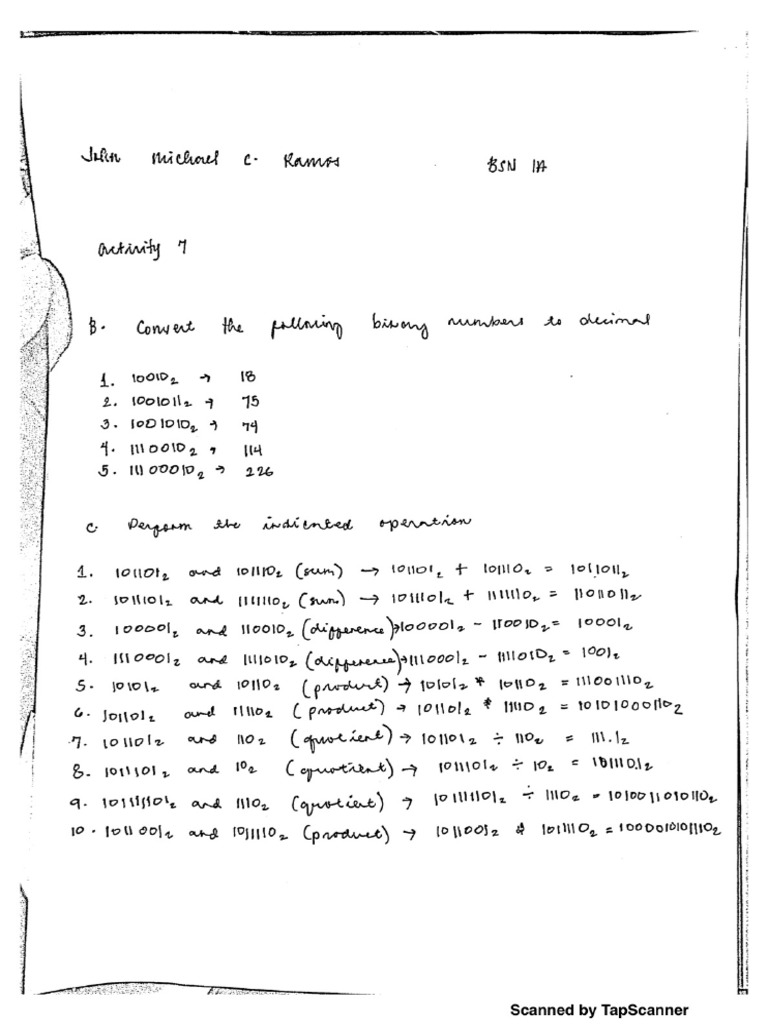 John Michael C. Ramos BSN 1A
Activity 7
B. Convert the following binary numbers to decimal
1. 10010₂ → 18
2. 1001011₂ → 75
3. 1001010₂ → 74
4. 1110010₂ → 114
5. 11100010₂ → 226
C. Perform the indicated operation
1. 101101₂ and 101110₂ (sum) → 101101₂ + 101110₂ = 1011011₂
2. 1011101₂ and 1111110₂ (sum) → 1011101₂ + 1111110₂ = 11011011₂
3. 100001₂ and 110010₂ (difference) → 100001₂ - 110010₂ = 10001₂
4. 1110001₂ and 1111010₂ (difference) → 1110001₂ - 1111010₂ = 1001₂
5. 10101₂ and 10110₂ (product) → 10101₂ * 10110₂ = 111001110₂
6. 101101₂ and 11110₂ (product) → 101101₂ * 11110₂ = 10101000110₂
7. 101101₂ and 110₂ (quotient) → 101101₂ ÷ 110₂ = 111.1₂
8. 1011101₂ and 10₂ (quotient) → 1011101₂ ÷ 10₂ = 101110.1₂
9. 101111101₂ and 1110₂ (quotient) → 101111101₂ ÷ 1110₂ = 1010011010110₂
10. 1011001₂ and 1011110₂ (product) → 1011001₂ * 1011110₂ = 10000101011110₂
Scanned by TapScanner